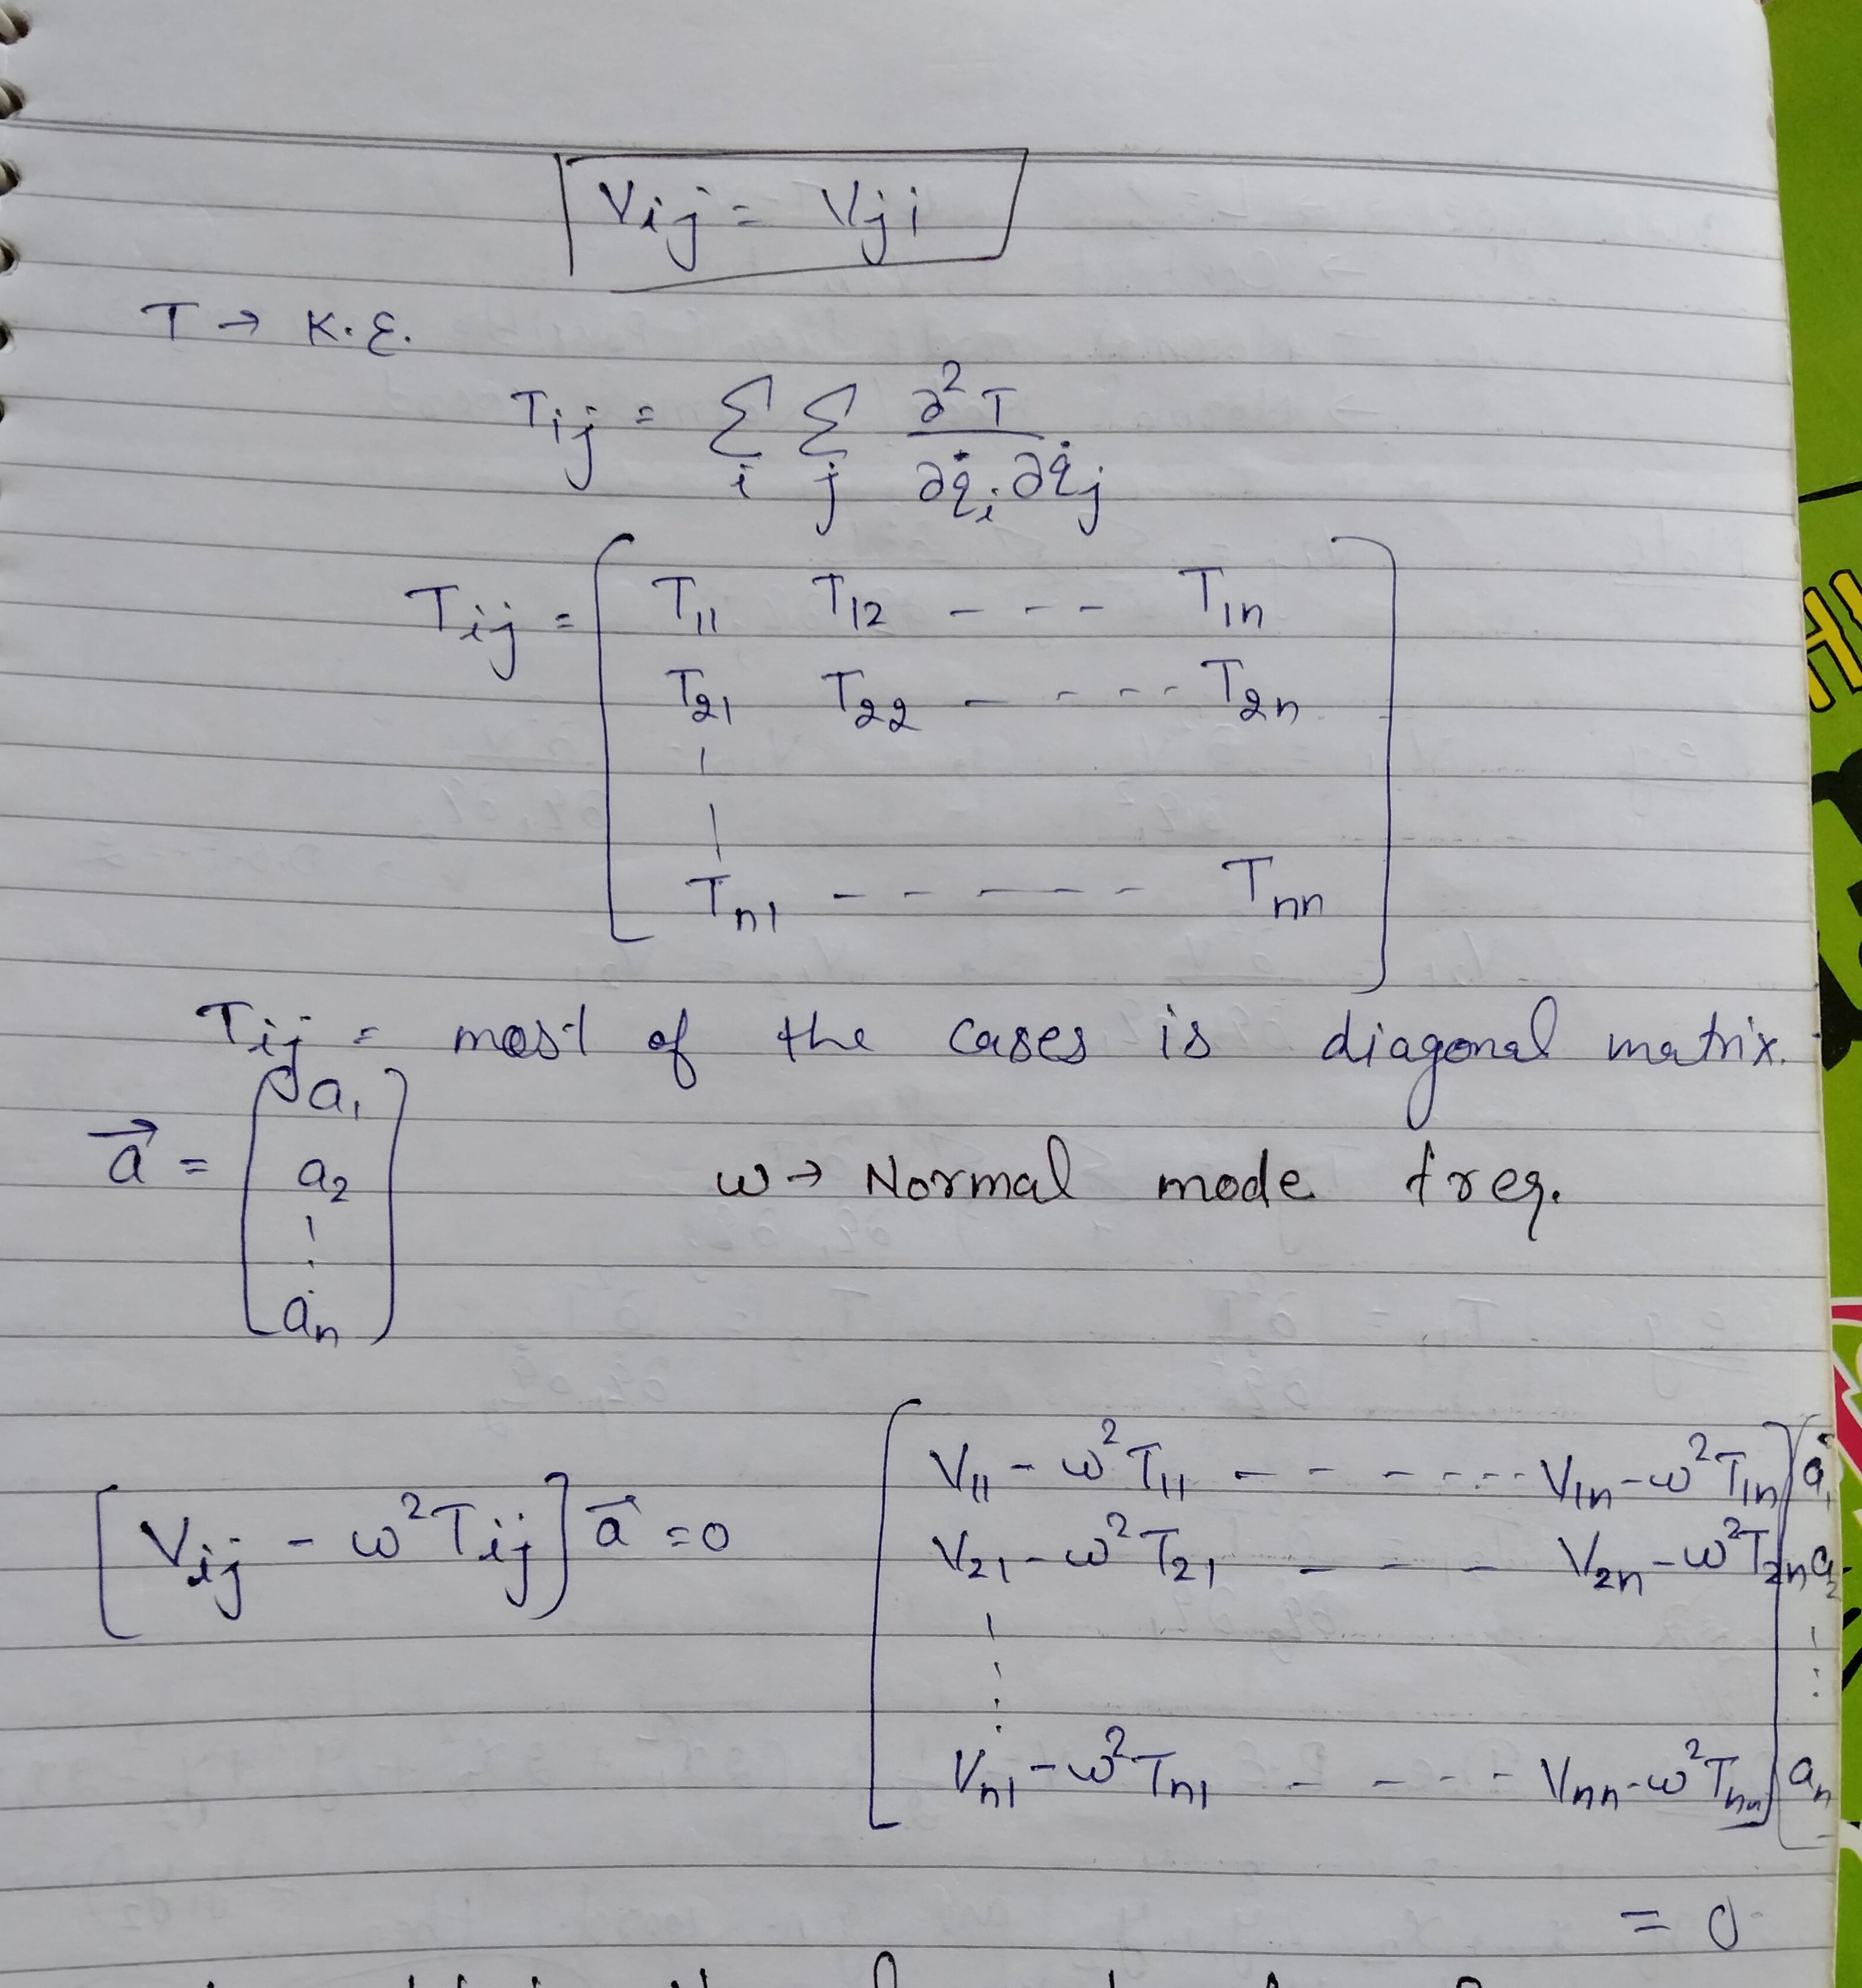 Vij = Vji
T → K.E.
Tij = Σi Σj ∂²T / ∂q̇i ∂q̇j
Tij = [ T11 T12 - - - T1n
T21 T22 - - - - - T2n
Tn1 - - - - - Tnn ]
Tij = most of the cases is diagonal matrix.
a⃗ = [ a1 a2 ⋮ an ]
ω → Normal mode freq.
[Vij - ω²Tij] a⃗ = 0
[ V11 - ω²T11 - - - - - - - V1n - ω²T1n ] [ a1
V21 - ω²T21 - - - V2n - ω²T2n a2
Vn1 - ω²Tn1 - - - - - Vnn - ω²Tnn ] an ]
= 0